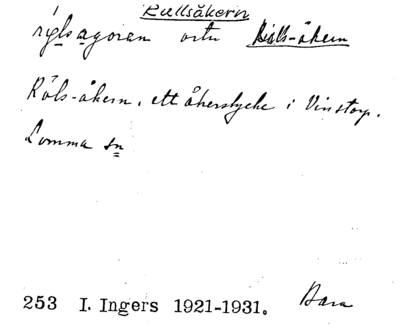 Rællsåkern
rýlsagoran
Röls-åkern, ett åkerstycke i Vinstorp.
Lomma sn
253 I. Ingers 1921-1931. Bara